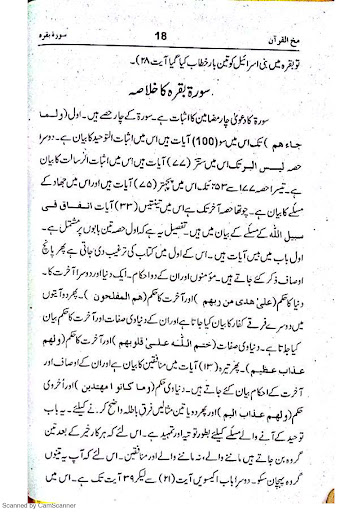 مخ القرآن 18 سورۃ بقرہ
تو بقرہ میں بنی اسرائیل کو تین بار خطاب کیا گیا آیت ۲۸)۔
سورۃ بقرہ کا خلاصہ
سورۃ کا دعویٰ چار مضامین کا اثبات ہے۔ سورۃ کے چار حصے ہیں۔ اول (ولما
جاء هم) تک اس میں سو (100) آیات ہیں اس میں اثبات التوحید کا بیان ہے۔ دوسرا
حصہ لیس البر تک اس میں ستتر (۷۷) آیات ہیں اس میں اثبات الرسالت کا بیان
ہے۔ تیسرا حصہ ۱۷۷ سے ۲۵۳ تک اس میں پچھتر (۷۵) آیات ہیں اور اس میں جھاد کے
مسئلے کا بیان ہے۔ چوتھا حصہ آخر تک ہے اس میں تینتیس (۳۳) آیات انفاق فی
سبیل اللہ کے مسئلے کے بیان میں ہیں۔ تفصیل یہ ہے کہ اول حصہ تین بابوں پر مشتمل ہے۔
اول باب میں بیس آیات ہیں۔ اس کے اول میں کتاب کی ترغیب دی جاتی ہے پھر پانچ
اوصاف ذکر کئے جاتے ہیں۔ مؤمنوں اور ان کے دو احکام۔ ایک دنیا اور دوسرا آخرت کا۔
دنیا کا حکم (علیٰ هدی من ربهم) اور آخرت کا حکم (هم المفلحون)۔ پھر دو آیتوں
میں دوسرے فرقے کفار کا بیان کیا جاتا ہے اور ان کے دنیاوی صفات اور آخرت کا حکم بیان
کیا جاتا ہے۔ دنیاوی صفات (ختم اللہ علیٰ قلوبهم) اور آخرت کا حکم (ولهم
عذاب عظیم)۔ پھر تیرہ (۱۳) آیات میں منافقین کا بیان ہے اور ان کے اوصاف اور
آخرت کے احکام بیان کئے جاتے ہیں۔ دنیاوی حکم (وما کانوا مهتدین) اور اُخروی
حکم (ولهم عذاب الیم) اور پھر دو یا تین مثالیں فرق باطلہ واضح کرنے کیلئے۔ یہ باب
توحید کے آنے والے مسئلے کیلئے بطور توتیہ اور تمہید ہے۔ اس لئے کہ ہر کار خیر کے بعد تین
گروہ بن جاتے ہیں ماننے والے، نہ ماننے والے اور منافقین۔ اس لئے کہ آپ یہ تینوں
گروہ پہچان سکو۔ دوسرا باب اکیسویں آیت (۲۱) سے لیکر ۳۹ آیت تک ہے۔ اس میں
Scanned by CamScanner